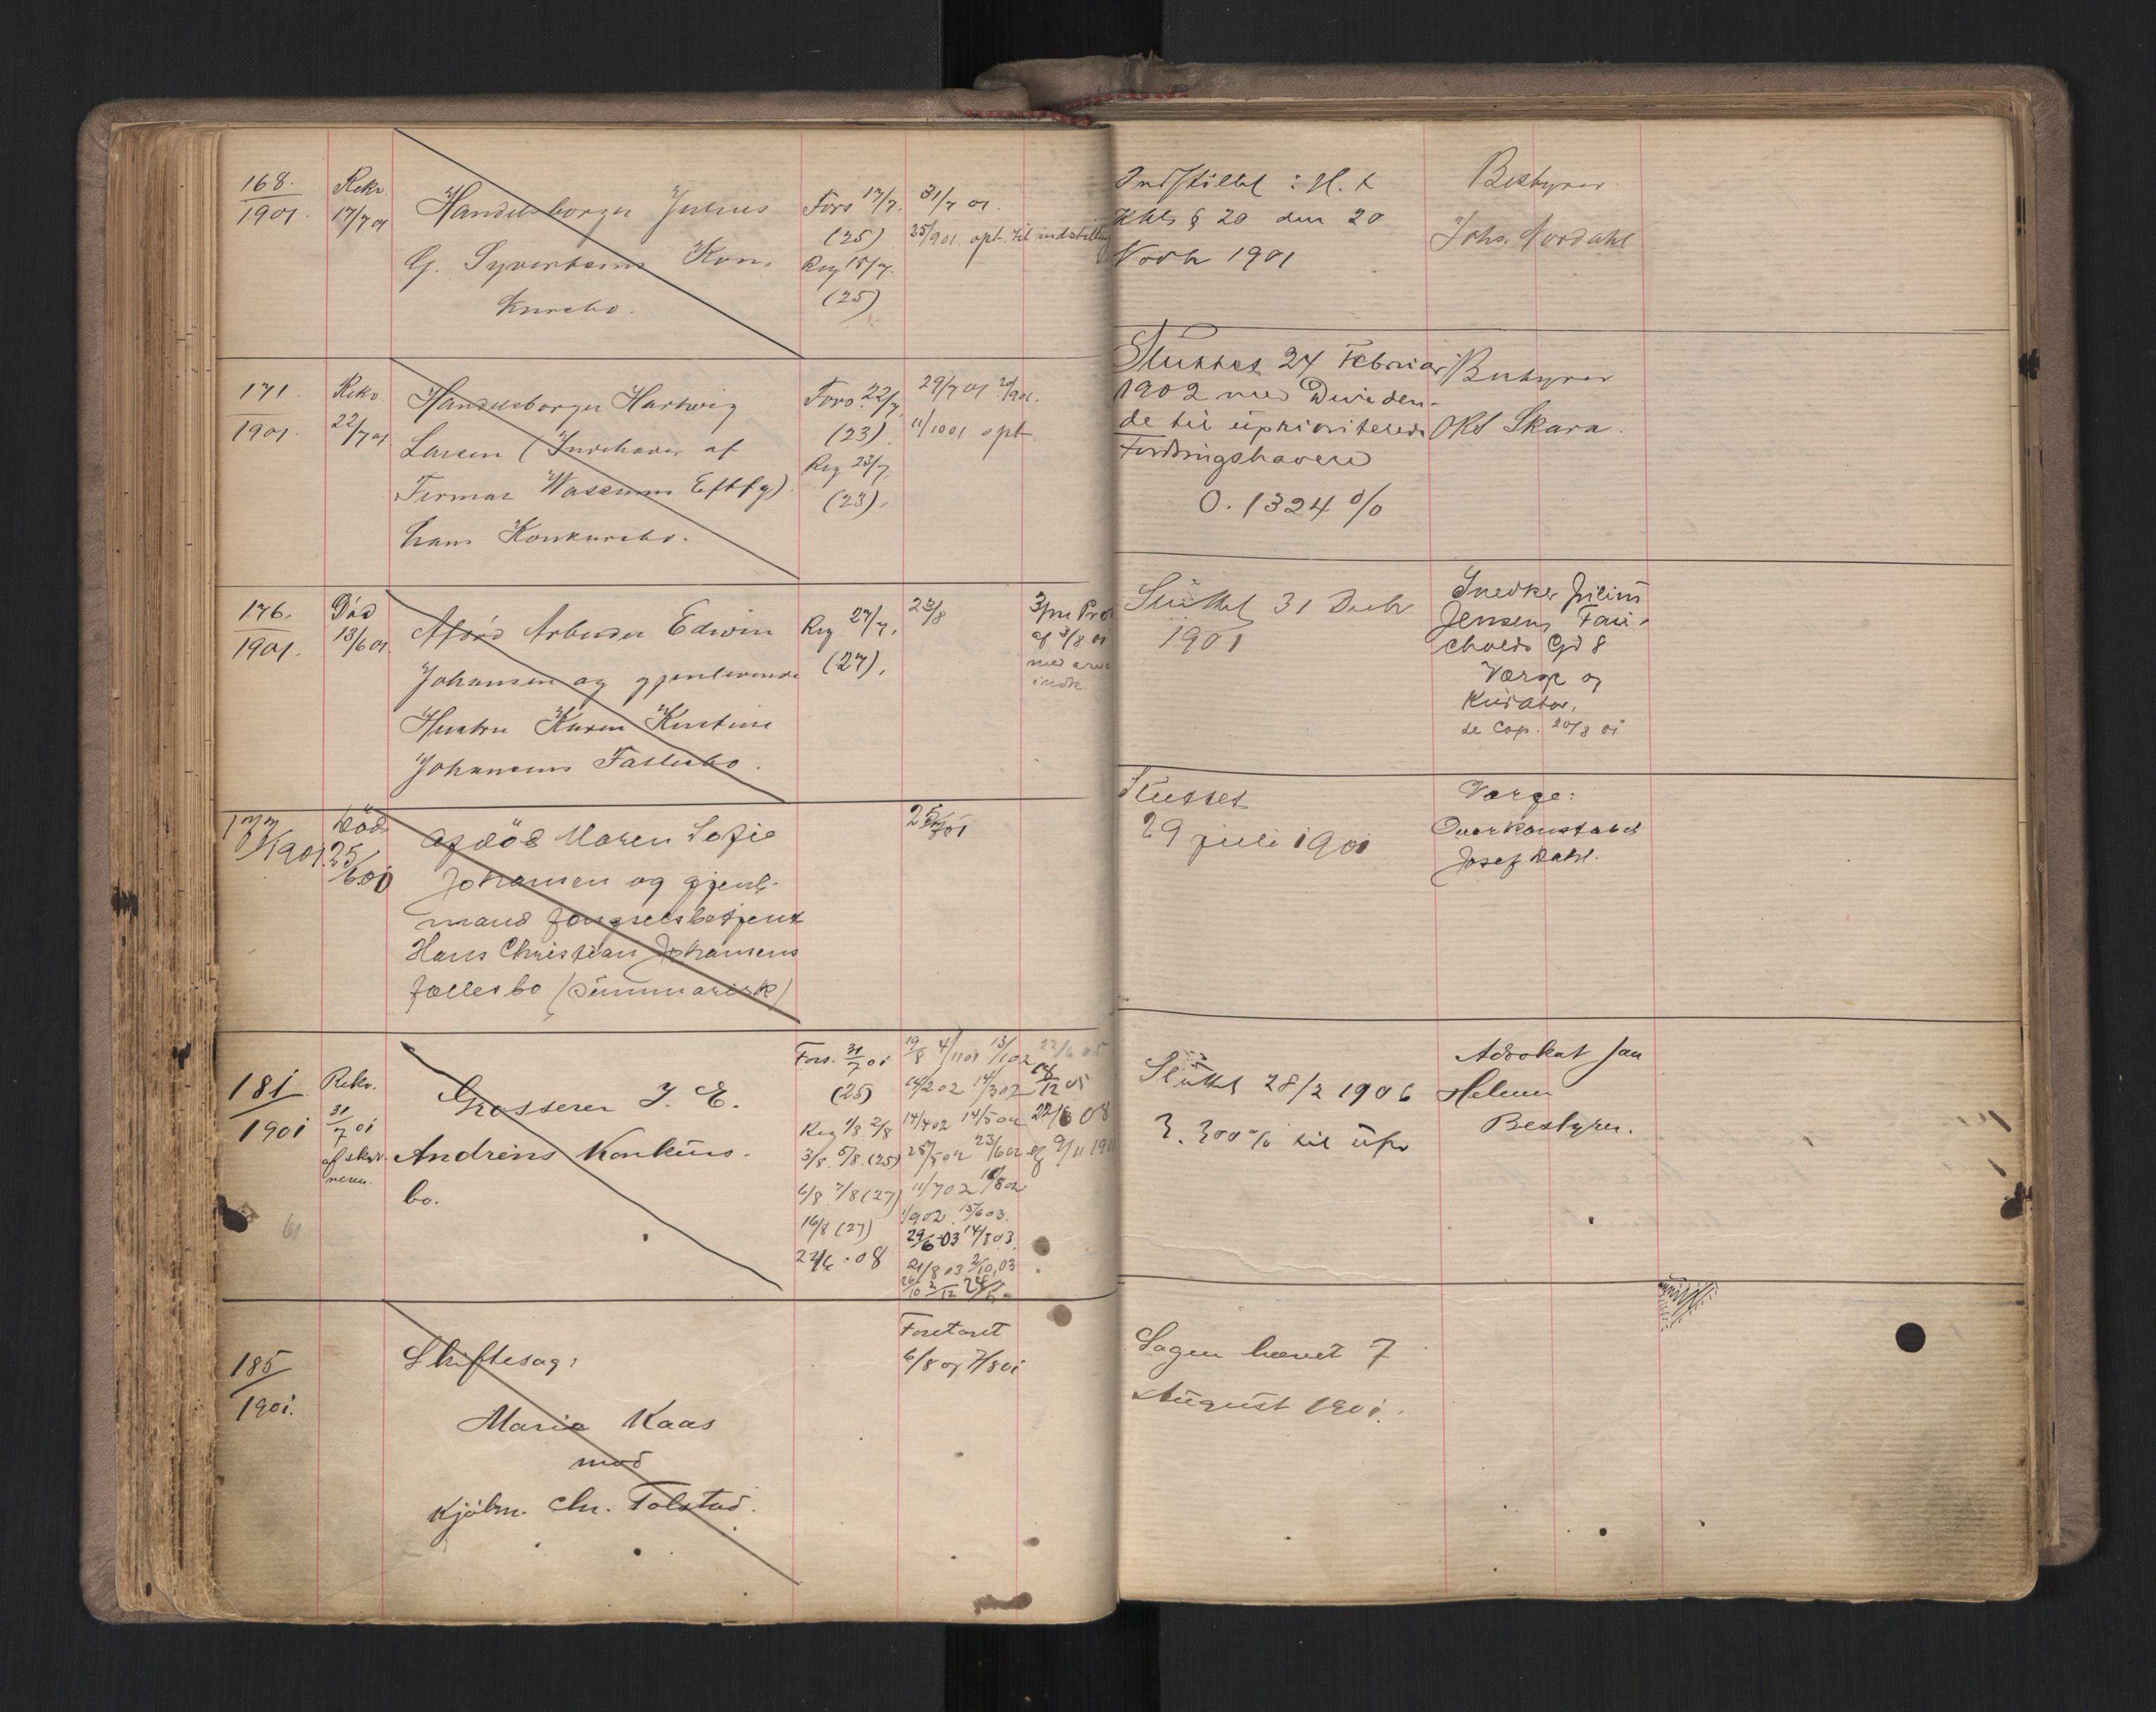 168.
1901.
Rekv.
17/7 01
Handelsborger Julius
G. Syvertsens Kon-
kursbo.
Fors 17/7.
(25)
Reg 18/7.
(25)
31/7 01.
25/9 01. opt. til indstilling
Indstillet i H. t
Khls § 20 den 20
Novbr 1901
Bestyrer
Johs. Nordahl
171.
1901.
Rekv.
22/7 01
Handelsborger Hartwig
Larsen (Indehaver af
Firmaet Wassums Eftfg)
hans Konkursbo.
Fors. 22/7
(23)
Reg 23/7
(23).
29/7 01
11/10 01 opt
Sluttet 24 Februar
1902 med Dividen-
de til uprioriterede
Fordringshavere
0.1324 %
Bestyrer
ORS Skara.
176.
1901.
Død
13/6 01
Afdød Arbeider Edwin
Johansen og gjenlevende
Hustru Karen Kristine
Johansens Fællesbo.
Reg 27/7.
(27).
23/8
af 3/8 01
med
Sluttet 31 Decbr
1901
Snedker Julius
Jensen,
Gd 8
Værge og
Kurator,
177
1901
Død
25/6 01
Afdød Maren Sofie
Johansen og gjenl.
mand fængselsbetjent
Hans Christian Johansens
fællesbo (summarisk)
Sluttet
29 juli 1901
Værge:
Overkonstabel
Josef Dahl.
181
1901
Rekv.
31/7 01
af skyld-
neren.
Grosserer J. E.
Andréns Konkurs-
bo.
Fors. 31/7 01
(25)
Reg 1/8 2/8
3/8. 5/8. (25)
6/8. 7/8 (27)
16/8 (27)
22/6 . 08
19/8 4/11 01 13/1 02 22/6 05
14/2 02 14/3 02 18/12 05
14/4 02 14/5 02 22/6 08
23/6 02 og 9/11 1911
11/7 02 18/8 02
1/9 02 15/6 03.
29/6 03 14/8 03.
21/8 03 2/10 03
Sluttet 28/2 1906
3.300 % til upr
Advokat Jan
Helmer
Bestyrer.
185
1901.
Skiftesag:
Maria Kaas
mod
Kjøbm. Chr. Tolstad.
Foretaret
6/8 og 7/8 01
Sagen hævet 7
August 1901.